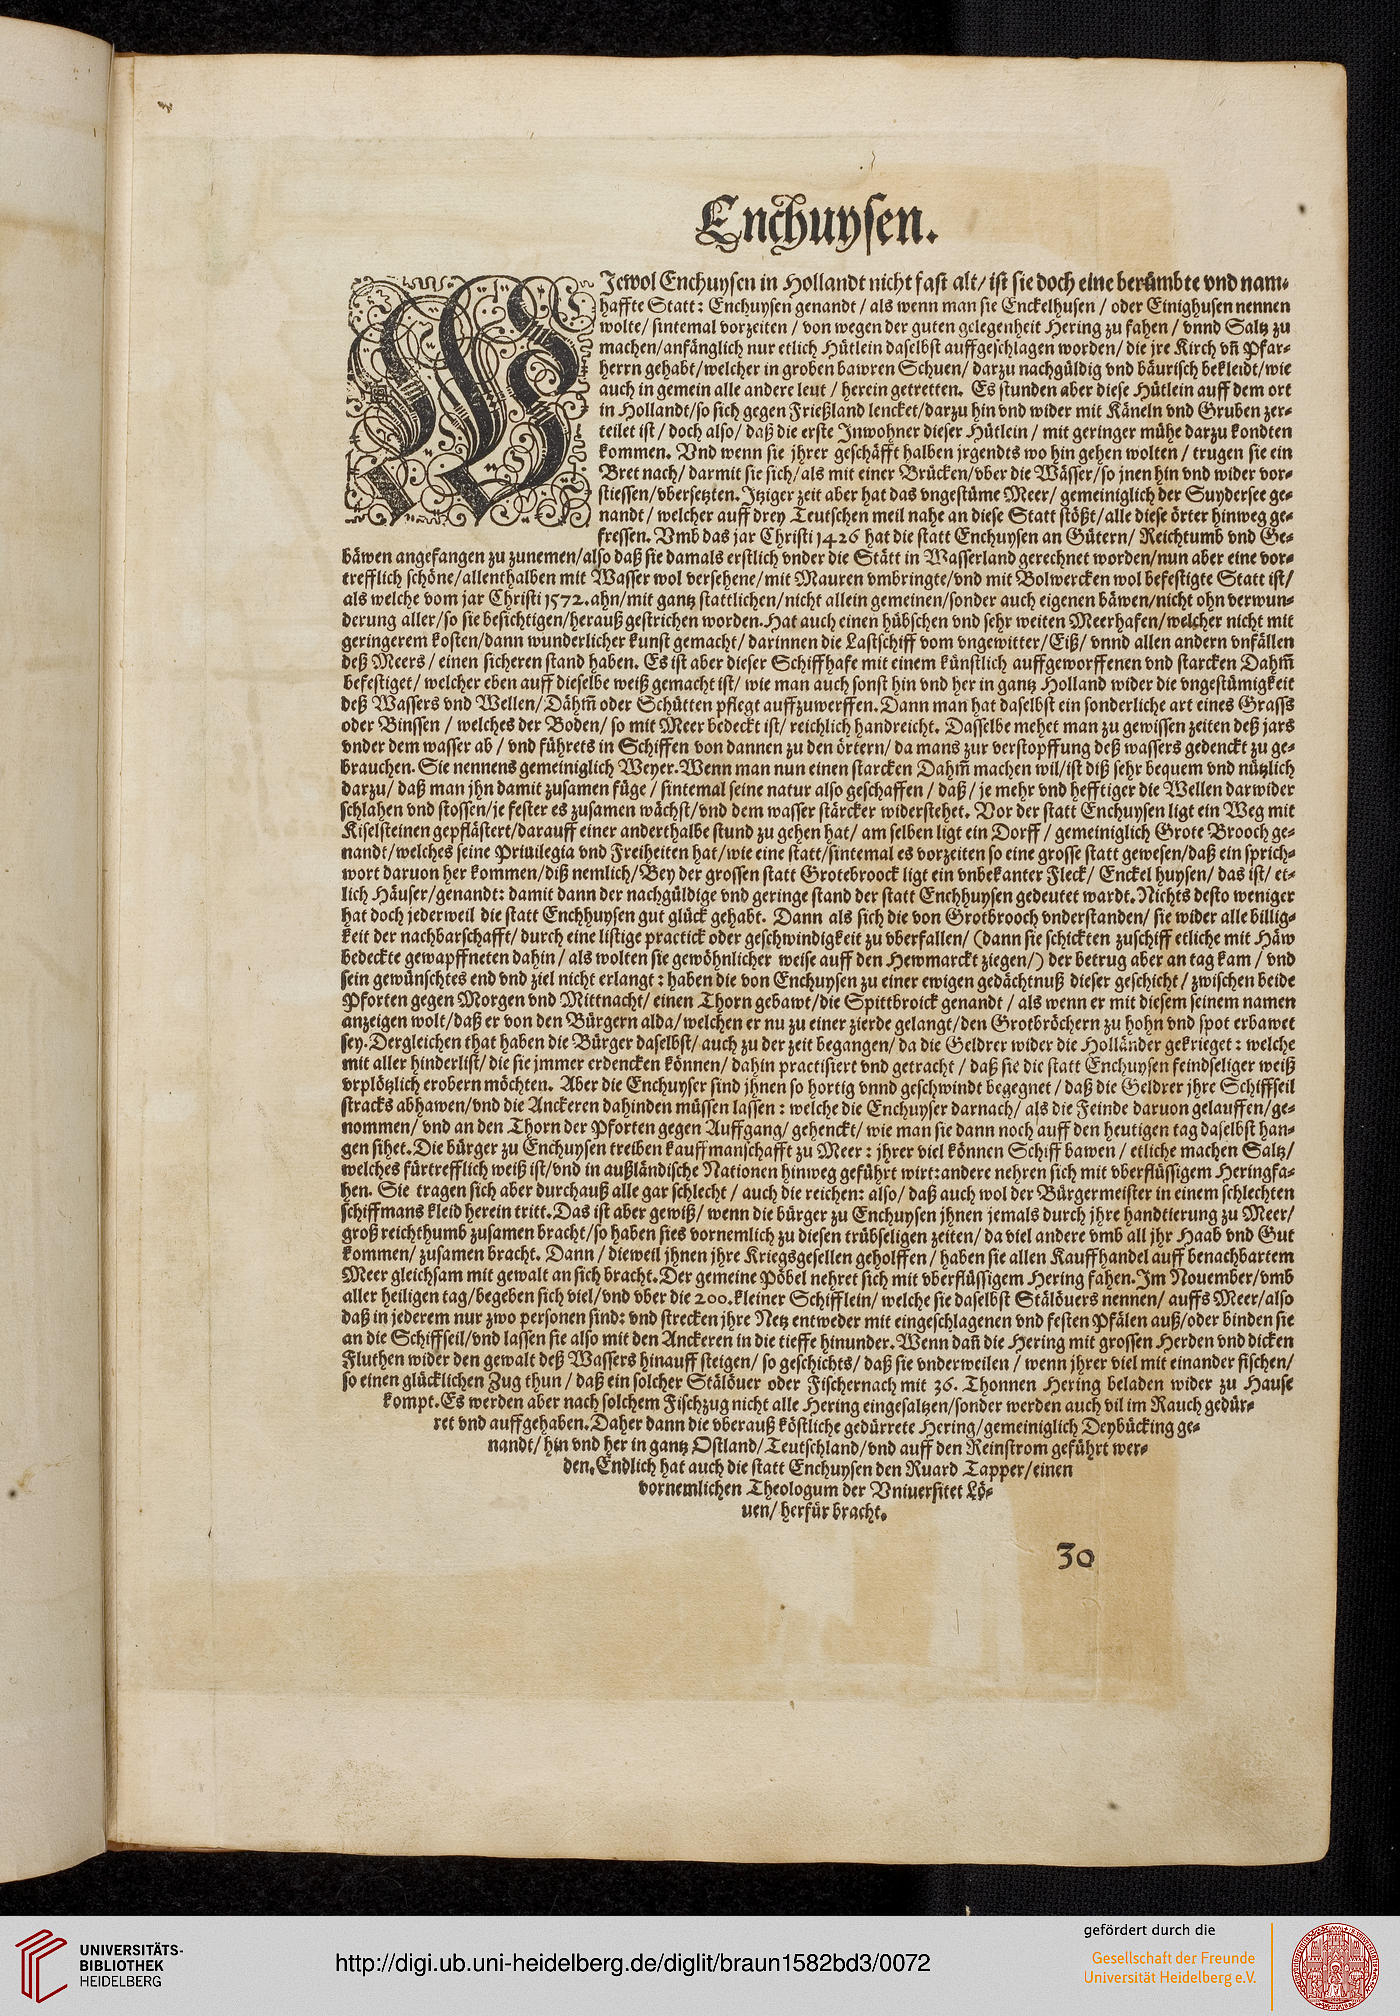 Enchuysen.
WJewol Enchuysen in Hollandt nicht fast alt/ ist sie doch eine berümbte vnd nam-
haffte Statt: Enchuysen genandt / als wenn man sie Enckelhusen / oder Einighusen nennen
wolte/ sintemal vorzeiten / von wegen der guten gelegenheit Hering zu fahen / vnnd Saltz zu
machen/anfänglich nur etlich Hütlein daselbst auffgeschlagen worden/ die jre Kirch vñ Pfar-
herrn gehabt/welcher in groben bawren Schuen/ darzu nachgüldig vnd bäurisch bekleidt/wie
auch in gemein alle andere leut / herein getretten. Es stunden aber diese Hütlein auff dem ort
in Hollandt/so sich gegen Frießland lencket/darzu hin vnd wider mit Käneln vnd Gruben zer-
teilet ist / doch also/ daß die erste Jnwohner dieser Hütlein / mit geringer mühe darzu kondten
kommen. Vnd wenn sie jhrer geschäfft halben jrgendts wo hin gehen wolten / trugen sie ein
Bret nach/ darmit sie sich/als mit einer Brücken/vber die Wässer/so jnen hin vnd wider vor-
stiessen/vbersetzten. Jtziger zeit aber hat das vngestüme Meer/ gemeiniglich der Suydersee ge-
nandt / welcher auff drey Teutschen meil nahe an diese Statt stößt/alle diese örter hinweg ge-
fressen. Vmb das jar Christi 1426 hat die statt Enchuysen an Gütern/ Reichtumb vnd Ge-
bäwen angefangen zu zunemen/also daß sie damals erstlich vnder die Stätt in Wasserland gerechnet worden/nun aber eine vor-
trefflich schöne/allenthalben mit Wasser wol versehene/mit Mauren vmbringte/vnd mit Bolwercken wol befestigte Statt ist/
als welche vom jar Christi 1572.ahn/mit gantz stattlichen/nicht allein gemeinen/sonder auch eigenen bäwen/nicht ohn verwun-
derung aller/so sie besichtigen/herauß gestrichen worden.Hat auch einen hübschen vnd sehr weiten Meerhafen/welcher nicht mit
geringerem kosten/dann wunderlicher kunst gemacht/ darinnen die Lastschiff vom vngewitter/Eiß/ vnnd allen andern vnfällen
deß Meers / einen sicheren stand haben. Es ist aber dieser Schiffhafe mit einem künstlich auffgeworffenen vnd starcken Dahm̃
befestiget/ welcher eben auff dieselbe weiß gemacht ist/ wie man auch sonst hin vnd her in gantz Holland wider die vngestümigkeit
deß Wassers vnd Wellen/Dähm̃ oder Schütten pflegt auffzuwerffen.Dann man hat daselbst ein sonderliche art eines Grasss
oder Binssen / welches der Boden/ so mit Meer bedeckt ist/ reichlich handreicht. Dasselbe mehet man zu gewissen zeiten deß jars
vnder dem wasser ab / vnd führets in Schiffen von dannen zu den örtern/ da mans zur verstopffung deß wassers gedenckt zu ge-
brauchen. Sie nennens gemeiniglich Weyer.Wenn man nun einen starcken Dahm̃ machen wil/ist diß sehr bequem vnd nützlich
darzu/ daß man jhn damit zusamen füge / sintemal seine natur also geschaffen / daß / je mehr vnd hefftiger die Wellen darwider
schlahen vnd stossen/je fester es zusamen wächst/vnd dem wasser stärcker widerstehet. Vor der statt Enchuysen ligt ein Weg mit
Kiselsteinen gepflästert/darauff einer anderthalbe stund zu gehen hat/ am selben ligt ein Dorff / gemeiniglich Grote Brooch ge-
nandt/welches seine Priuilegia vnd Freiheiten hat/wie eine statt/sintemal es vorzeiten so eine grosse statt gewesen/daß ein sprich-
wort daruon her kommen/diß nemlich/Bey der grossen statt Grotebroock ligt ein vnbekanter Fleck/ Enckel huysen/ das ist/ et-
lich Häuser/genandt: damit dann der nachgüldige vnd geringe stand der statt Enchhuysen gedeutet wardt.Nichts desto weniger
hat doch jederweil die statt Enchhuysen gut glück gehabt. Dann als sich die von Grotbrooch vnderstanden/ sie wider alle billig-
keit der nachbarschafft/ durch eine listige practick oder geschwindigkeit zu vberfallen/ (dann sie schickten zuschiff etliche mit Häw
bedeckte gewapffneten dahin/ als wolten sie gewöhnlicher weise auff den Hewmarckt ziegen/) der betrug aber an tag kam / vnd
sein gewünschtes end vnd ziel nicht erlangt : haben die von Enchuysen zu einer ewigen gedächtnuß dieser geschicht / zwischen beide
Pforten gegen Morgen vnd Mittnacht/ einen Thorn gebawt/die Spittbroick genandt / als wenn er mit diesem seinem namen
anzeigen wolt/daß er von den Bürgern alda/welchen er nu zu einer zierde gelangt/den Grotbröchern zu hohn vnd spot erbawet
sey.Dergleichen that haben die Bürger daselbst/ auch zu der zeit begangen/ da die Geldrer wider die Holländer gekrieget : welche
mit aller hinderlist/ die sie jmmer erdencken können/ dahin practisiert vnd getracht / daß sie die statt Enchuysen feindseliger weiß
vrplötzlich erobern möchten. Aber die Enchuyser sind jhnen so hortig vnnd geschwindt begegnet / daß die Geldrer jhre Schiffseil
stracks abhawen/vnd die Anckeren dahinden müssen lassen : welche die Enchuyser darnach/ als die Feinde daruon gelauffen/ge-
nommen/ vnd an den Thorn der Pforten gegen Auffgang/ gehenckt/ wie man sie dann noch auff den heutigen tag daselbst han-
gen sihet.Die bürger zu Enchuysen treiben kauffmanschafft zu Meer : jhrer viel können Schiff bawen / etliche machen Saltz/
welches fürtrefflich weiß ist/vnd in außländische Nationen hinweg geführt wirt:andere nehren sich mit vberflüssigem Heringfa-
hen. Sie tragen sich aber durchauß alle gar schlecht / auch die reichen: also/ daß auch wol der Bürgermeister in einem schlechten
schiffmans kleid herein tritt.Das ist aber gewiß/ wenn die bürger zu Enchuysen jhnen jemals durch jhre handtierung zu Meer/
groß reichthumb zusamen bracht/so haben sies vornemlich zu diesen trübseligen zeiten/ da viel andere vmb all jhr Haab vnd Gut
kommen/ zusamen bracht. Dann / dieweil jhnen jhre Kriegsgesellen geholffen / haben sie allen Kauffhandel auff benachbartem
Meer gleichsam mit gewalt an sich bracht.Der gemeine Pöbel nehret sich mit vberflüssigem Hering fahen.Jm Nouember/vmb
aller heiligen tag/begeben sich viel/vnd vber die 200.kleiner Schifflein/ welche sie daselbst Stälöuers nennen/ auffs Meer/also
daß in jederem nur zwo personen sind: vnd strecken jhre Netz entweder mit eingeschlagenen vnd festen Pfälen auß/oder binden sie
an die Schiffseil/vnd lassen sie also mit den Anckeren in die tieffe hinunder.Wenn dañ die Hering mit grossen Herden vnd dicken
Fluthen wider den gewalt deß Wassers hinauff steigen/ so geschichts/ daß sie vnderweilen / wenn jhrer viel mit einander fischen/
so einen glücklichen Zug thun / daß ein solcher Stälöuer oder Fischernach mit 36. Thonnen Hering beladen wider zu Hause
kompt.Es werden aber nach solchem Fischzug nicht alle Hering eingesaltzen/sonder werden auch vil im Rauch gedür-
ret vnd auffgehaben.Daher dann die vberauß köstliche gedürrete Hering/gemeiniglich Deybücking ge-
nandt/ hin vnd her in gantz Ostland/Teutschland/vnd auff den Reinstrom geführt wer-
den.Endlich hat auch die statt Enchuysen den Ruard Tapper/einen
vornemlichen Theologum der Vniuersitet Lö-
uen/ herfür bracht.
30
UNIVERSITÄTS-
BIBLIOTHEK
HEIDELBERG
http://digi.ub.uni-heidelberg.de/diglit/braun1582bd3/0072
gefördert durch die
Gesellschaft der Freunde
Universität Heidelberg e.V.